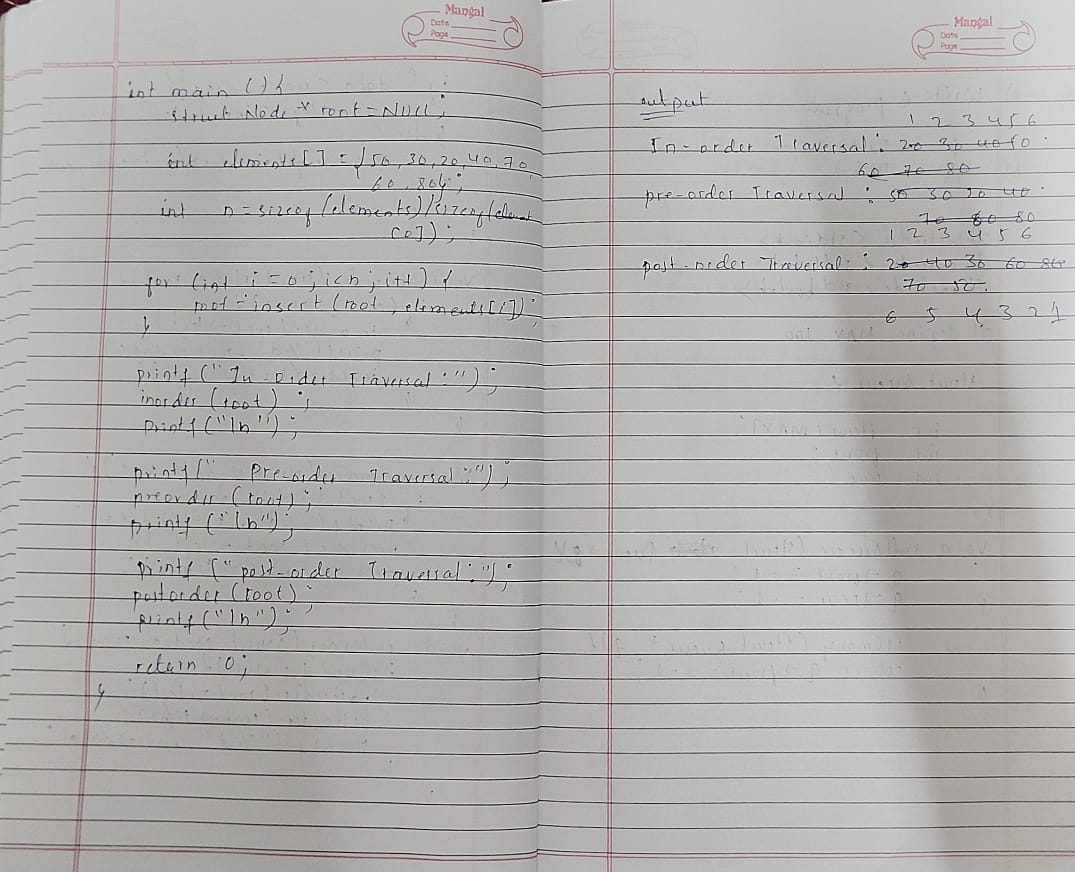 Mangal
Date
Page
int main () {
struct Node * root = NULL;
int elements [ ] = { 50, 30, 20, 40, 70
60, 80 };
int n = sizeof (elements) / sizeof (element
[0]);
for (int i = 0 ; i < n ; i++) {
root = insert (root, elements [i]);
}
printf (" In-order Traversal : ");
inorder (root) ;
printf ("\n") ;
printf (" Pre-order Traversal : ") ;
preorder (root) ;
printf ("\n");
printf (" post-order Traversal : ") ;
postorder (root) ;
printf ("\n") ;
return 0;
}
Mangal
Date
Page
output
1 2 3 4 5 6
In-order Traversal : 20 30 40 50
60 70 80
pre-order Traversal : 50 30 20 40
70 60 80
1 2 3 4 5 6
post-order Traversal : 20 40 30 60 80
70 50.
6 5 4 3 2 1